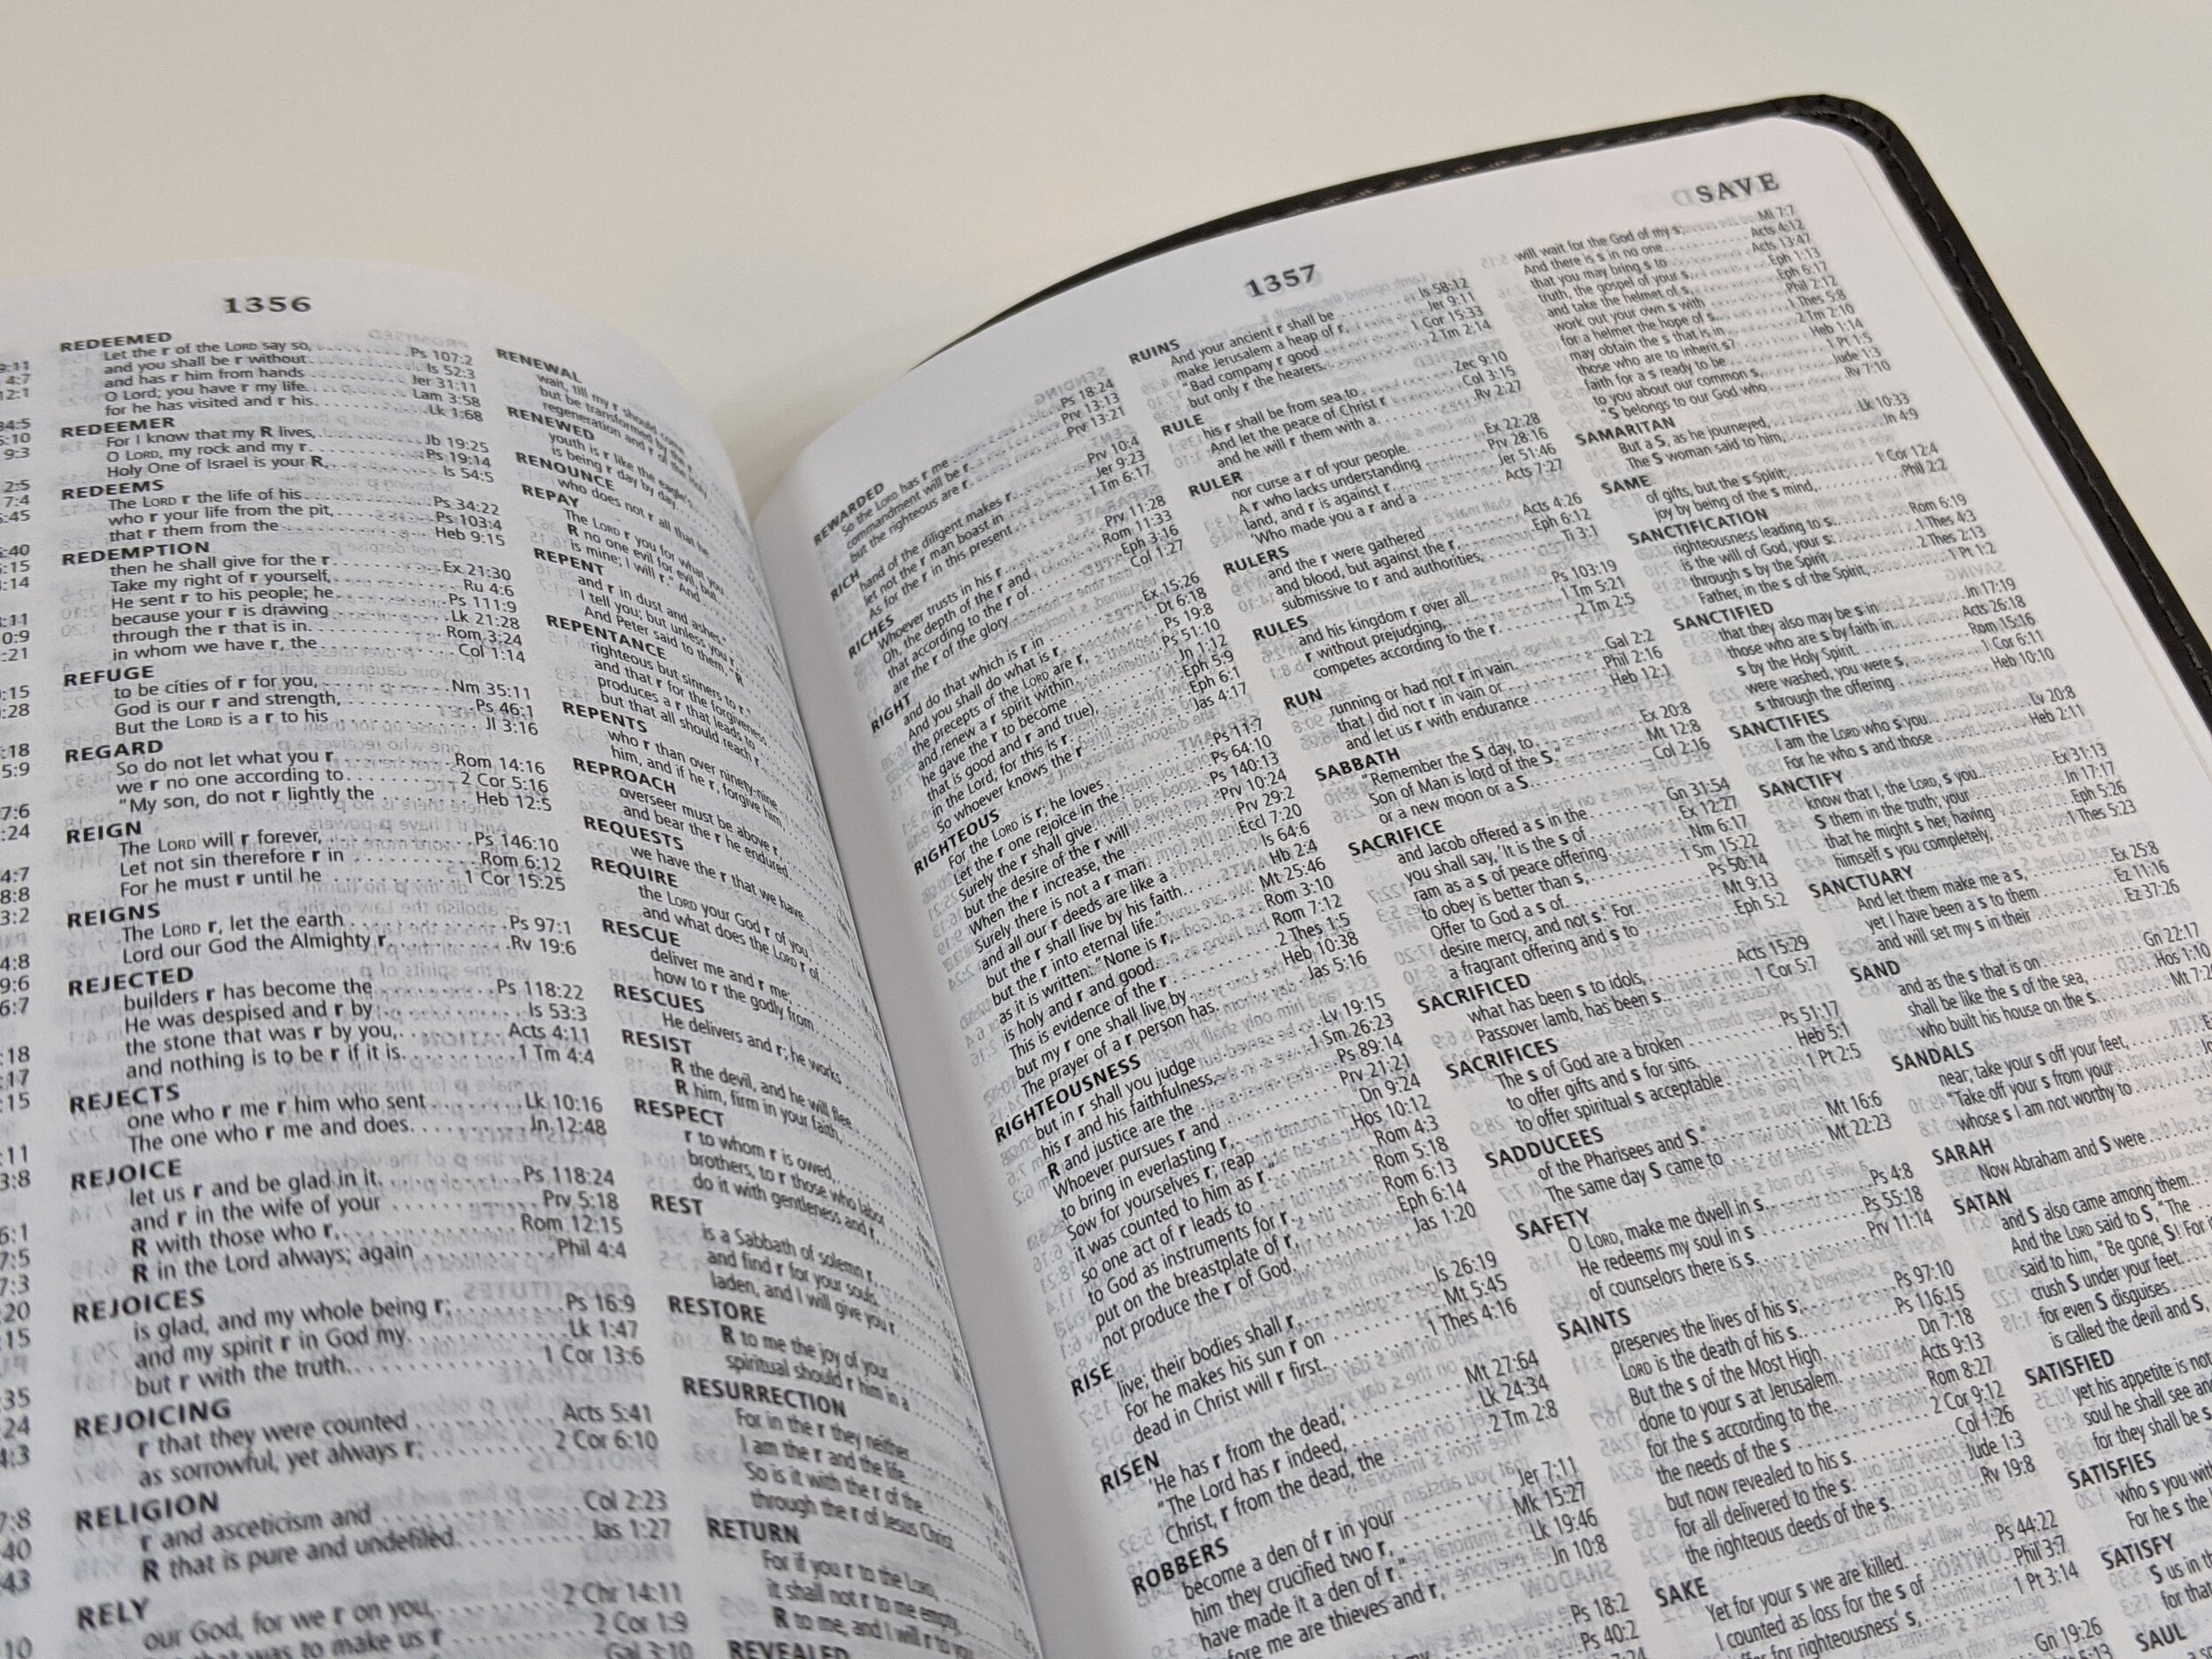 1356
REDEEMED
Let the r of the LORD say so, Ps 107:2
and you shall be r without Is 52:3
and has r him from hands Jer 31:11
O Lord; you have r my life Lam 3:58
for he has visited and r his Lk 1:68
REDEEMER
For I know that my R lives, Jb 19:25
O LORD, my rock and my r Ps 19:14
Holy One of Israel is your R, Is 54:5
REDEEMS
The LORD r the life of his Ps 34:22
who r your life from the pit, Ps 103:4
that r them from the Heb 9:15
REDEMPTION
then he shall give for the r Ex 21:30
Take my right of r yourself, Ru 4:6
He sent r to his people; he Ps 111:9
because your r is drawing Lk 21:28
through the r that is in Rom 3:24
in whom we have r, the Col 1:14
REFUGE
to be cities of r for you, Nm 35:11
God is our r and strength, Ps 46:1
But the LORD is a r to his Jl 3:16
REGARD
So do not let what you r Rom 14:16
we r no one according to 2 Cor 5:16
"My son, do not r lightly the Heb 12:5
REIGN
The LORD will r forever, Ps 146:10
Let not sin therefore r in Rom 6:12
For he must r until he 1 Cor 15:25
REIGNS
The LORD r, let the earth Ps 97:1
Lord our God the Almighty r Rv 19:6
REJECTED
builders r has become the Ps 118:22
He was despised and r by Is 53:3
the stone that was r by you, Acts 4:11
and nothing is to be r if it is 1 Tm 4:4
REJECTS
one who r me r him who sent Lk 10:16
The one who r me and does Jn 12:48
REJOICE
let us r and be glad in it. Ps 118:24
and r in the wife of your Prv 5:18
R with those who r, Rom 12:15
R in the Lord always; again Phil 4:4
REJOICES
is glad, and my whole being r; Ps 16:9
and my spirit r in God my Lk 1:47
but r with the truth. 1 Cor 13:6
REJOICING
r that they were counted Acts 5:41
as sorrowful, yet always r; 2 Cor 6:10
RELIGION
r and asceticism and Col 2:23
R that is pure and undefiled Jas 1:27
RELY
our God, for we r on you, 2 Chr 14:11
was to make us r 2 Cor 1:9
Gal 3:10
RENEWAL
wait, till my r should come
but be transformed by the r
regeneration and r of the Holy
RENEWED
youth is r like the eagle's
is being r day by day.
RENOUNCE
who does not r all that he
REPAY
The LORD r you for what you
R no one evil for evil, but
is mine; I will r." And
REPENT
and r in dust and ashes."
I tell you; but unless you r,
And Peter said to them, "R
REPENTANCE
righteous but sinners to r
and that r for the forgiveness
produces a r that leads to
but that all should reach r
REPENTS
who r than over ninety-nine
him, and if he r, forgive him,
REPROACH
overseer must be above r
and bear the r he endured
REQUESTS
we have the r that we have
REQUIRE
the LORD your God r of you
and what does the LORD r of
RESCUE
deliver me and r me;
how to r the godly from
RESCUES
He delivers and r; he works
RESIST
R the devil, and he will flee
R him, firm in your faith,
RESPECT
r to whom r is owed,
brothers, to r those who labor
do it with gentleness and r,
REST
is a Sabbath of solemn r,
and find r for your souls.
laden, and I will give you r
RESTORE
R to me the joy of your
spiritual should r him in a
RESURRECTION
For in the r they neither
I am the r and the life.
So is it with the r of the
through the r of Jesus Christ
RETURN
For if you r to the LORD,
it shall not r to me empty,
R to me, and I will r to you
REVEALED
1357
SAVE
REWARDED
So the LORD has r me Ps 18:24
commandment will be r Prv 13:13
but the righteous are r Prv 13:21
RICH
hand of the diligent makes r Prv 10:4
let not the r man boast in Jer 9:23
As for the r in this present 1 Tm 6:17
RICHES
Whoever trusts in his r Prv 11:28
Oh, the depth of the r and Rom 11:33
that according to the r of Eph 3:16
are the r of the glory Col 1:27
RIGHT
and do that which is r in Ex 15:26
And you shall do what is r Dt 6:18
the precepts of the LORD are r, Ps 19:8
and renew a r spirit within Ps 51:10
he gave the r to become Jn 1:12
that is good and r and true), Eph 5:9
in the Lord, for this is r Eph 6:1
So whoever knows the r Jas 4:17
RIGHTEOUS
For the LORD is r; he loves Ps 11:7
Let the r one rejoice in the Ps 64:10
Surely the r shall give Ps 140:13
but the desire of the r will Prv 10:24
When the r increase, the Prv 29:2
Surely there is not a r man Eccl 7:20
and all our r deeds are like a Is 64:6
but the r shall live by his faith Hb 2:4
but the r into eternal life." Mt 25:46
as it is written: "None is r, Rom 3:10
is holy and r and good Rom 7:12
This is evidence of the r 2 Thes 1:5
but my r one shall live by Heb 10:38
The prayer of a r person has Jas 5:16
RIGHTEOUSNESS
but in r shall you judge Lv 19:15
his r and his faithfulness, 1 Sm 26:23
R and justice are the Ps 89:14
Whoever pursues r and Prv 21:21
to bring in everlasting r, Dn 9:24
Sow for yourselves r; reap Hos 10:12
it was counted to him as r." Rom 4:3
so one act of r leads to Rom 5:18
to God as instruments for r Rom 6:13
put on the breastplate of r, Eph 6:14
not produce the r of God Jas 1:20
RISE
live; their bodies shall r Is 26:19
For he makes his sun r on Mt 5:45
dead in Christ will r first. 1 Thes 4:16
RISEN
'He has r from the dead,' Mt 27:64
"The Lord has r indeed, Lk 24:34
Christ, r from the dead, the 2 Tm 2:8
ROBBERS
become a den of r in your Jer 7:11
him they crucified two r, Mk 15:27
have made it a den of r." Lk 19:46
before me are thieves and r, Jn 10:8
Ps 18:2
Ps 40:2
RUINS
And your ancient r shall be Is 58:12
make Jerusalem a heap of r Jer 9:11
"Bad company r good 1 Cor 15:33
but only r the hearers 2 Tm 2:14
RULE
his r shall be from sea to Zec 9:10
And let the peace of Christ r Col 3:15
and he will r them with a Rv 2:27
RULER
nor curse a r of your people Ex 22:28
A r who lacks understanding Prv 28:16
land, and r is against r Jer 51:46
'Who made you a r and a Acts 7:27
RULERS
and the r were gathered Acts 4:26
and blood, but against the r, Eph 6:12
submissive to r and authorities, Ti 3:1
RULES
and his kingdom r over all Ps 103:19
r without prejudging, 1 Tm 5:21
competes according to the r 2 Tm 2:5
RUN
running or had not r in vain Gal 2:2
that I did not r in vain or Phil 2:16
and let us r with endurance Heb 12:1
SABBATH
"Remember the S day, to Ex 20:8
Son of Man is lord of the S." Mt 12:8
or a new moon or a S Col 2:16
SACRIFICE
and Jacob offered a s in the Gn 31:54
you shall say, 'It is the s of Ex 12:27
ram as a s of peace offering Nm 6:17
to obey is better than s, 1 Sm 15:22
Offer to God a s of Ps 50:14
desire mercy, and not s.' For Mt 9:13
a fragrant offering and s to Eph 5:2
SACRIFICED
what has been s to idols, Acts 15:29
Passover lamb, has been s 1 Cor 5:7
SACRIFICES
The s of God are a broken Ps 51:17
to offer gifts and s for sins Heb 5:1
to offer spiritual s acceptable 1 Pt 2:5
SADDUCEES
of the Pharisees and S." Mt 16:6
The same day S came to Mt 22:23
SAFETY
O LORD, make me dwell in s Ps 4:8
He redeems my soul in s Ps 55:18
of counselors there is s Prv 11:14
SAINTS
preserves the lives of his s; Ps 97:10
LORD is the death of his s Ps 116:15
But the s of the Most High Dn 7:18
done to your s at Jerusalem Acts 9:13
for the s according to the Rom 8:27
the needs of the s 2 Cor 9:12
but now revealed to his s Col 1:26
for all delivered to the s Jude 1:3
the righteous deeds of the s Rv 19:8
SAKE
Yet for your s we are killed Ps 44:22
I counted as loss for the s of Phil 3:7
for righteousness' s, 1 Pt 3:14
Gn 19:26
will wait for the God of my s; Mi 7:7
And there is s in no one Acts 4:12
that you may bring s to Acts 13:47
truth, the gospel of your s, Eph 1:13
and take the helmet of s, Eph 6:17
work out your own s with Phil 2:12
for a helmet the hope of s 1 Thes 5:8
may obtain the s that is in 2 Tm 2:10
those who are to inherit s? Heb 1:14
faith for a s ready to be 1 Pt 1:5
to you about our common s, Jude 1:3
"S belongs to our God who Rv 7:10
SAMARITAN
But a S, as he journeyed, Lk 10:33
The S woman said to him, Jn 4:9
SAME
of gifts, but the s Spirit; 1 Cor 12:4
joy by being of the s mind, Phil 2:2
SANCTIFICATION
righteousness leading to s Rom 6:19
is the will of God, your s: 1 Thes 4:3
through s by the Spirit 2 Thes 2:13
Father, in the s of the Spirit, 1 Pt 1:2
SANCTIFIED
that they also may be s in Jn 17:19
those who are s by faith in Acts 26:18
s by the Holy Spirit Rom 15:16
were washed, you were s 1 Cor 6:11
s through the offering Heb 10:10
SANCTIFIES
I am the LORD who s you Lv 20:8
For he who s and those Heb 2:11
SANCTIFY
know that I, the LORD, s you Ex 31:13
S them in the truth; your Jn 17:17
that he might s her, having Eph 5:26
himself s you completely, 1 Thes 5:23
SANCTUARY
And let them make me a s, Ex 25:8
yet I have been a s to them Ez 11:16
and will set my s in their Ez 37:26
SAND
and as the s that is on Gn 22:17
shall be like the s of the sea, Hos 1:10
who built his house on the s
SANDALS
near; take your s off your feet,
"Take off your s from your
whose s I am not worthy to
SARAH
Now Abraham and S were
SATAN
and S also came among them
And the LORD said to S, "The
said to him, "Be gone, S! For
crush S under your feet
for even S disguises
is called the devil and S,
SATISFIED
yet his appetite is not
soul he shall see and
for they shall be s
SATISFIES
who s you with
For he s the
SATISFY
S us in the
for that
SAUL